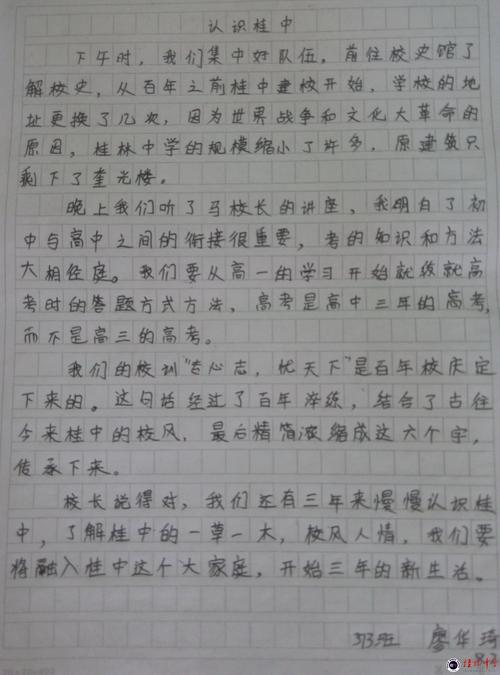 认识桂中
下午时，我们集中好队伍，前往校史馆了
解校史，从百年之前桂中建校开始，学校的地
址更换了几次，因为世界战争和文化大革命的
原因，桂林中学的规模缩小了许多，原建筑只
剩下了奎光楼。
晚上我们听了马校长的讲座，我明白了初
中与高中之间的衔接很重要，考的知识和方法
大相径庭。我们要从高一的学习开始就练就高
考时的答题方式方法，高考是高中三年的高考，
而不是高三的高考。
我们的校训"专心志，忧天下"是百年校庆定
下来的。这句话经过了百年淬练，结合了古往
今来桂中的校风，最后精简浓缩成这六个字，
传承下来。
校长说得对，我们还有三年来慢慢认识桂
中，了解桂中的一草一木，校风人情，我们要
将融入桂中这个大家庭，开始三年的新生活。
313班 廖华琦
8.2
桂林中学